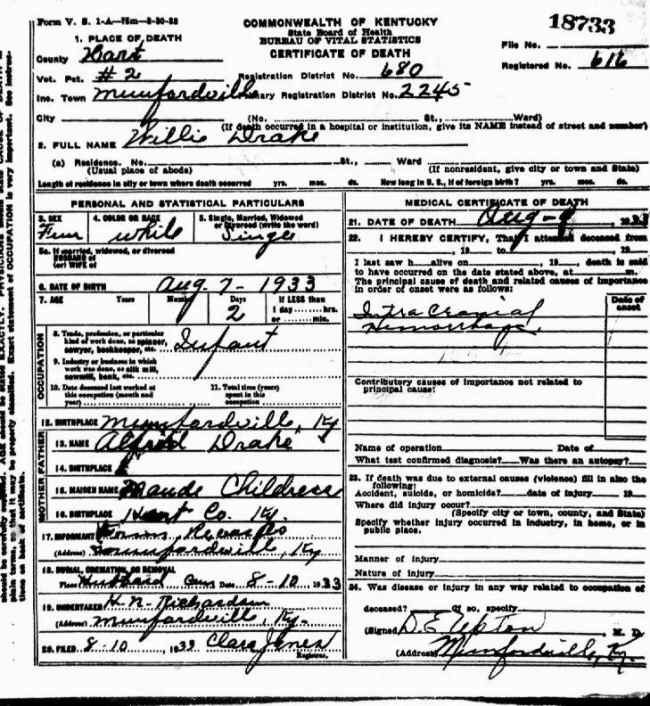 Form V. S. 1-A
COMMONWEALTH OF KENTUCKY
State Board of Health
BUREAU OF VITAL STATISTICS
CERTIFICATE OF DEATH
18733
File No.
Registered No. 616
1. PLACE OF DEATH
County Hart
Vot. Pct. #2
Registration District No. 680
Inc. Town Munfordville
Primary Registration District No. 2245
City (No. St., Ward)
(If death occurred in a hospital or institution, give its NAME instead of street and number)
2. FULL NAME Willie Drake
(a) Residence. No. St., Ward
(Usual place of abode) (If nonresident, give city or town and State)
Length of residence in city or town where death occurred yrs. mos. ds. How long in U. S., if of foreign birth? yrs. mos. ds.
PERSONAL AND STATISTICAL PARTICULARS
3. SEX Fem
4. COLOR OR RACE white
5. Single, Married, Widowed or Divorced (write the word) Single
5a. If married, widowed, or divorced
HUSBAND of
(or) WIFE of
6. DATE OF BIRTH Aug 7 - 1933
7. AGE Years Months Days 2 If LESS than
1 day hrs.
or min.
OCCUPATION
8. Trade, profession, or particular
kind of work done, as spinner,
sawyer, bookkeeper, etc. Infant
9. Industry or business in which
work was done, as silk mill,
sawmill, bank, etc.
10. Date deceased last worked at
this occupation (month and
year)
11. Total time (years)
spent in this
occupation
12. BIRTHPLACE Munfordville, Ky
FATHER
13. NAME Alfred Drake
14. BIRTHPLACE
MOTHER
15. MAIDEN NAME Maude Childress
16. BIRTHPLACE Hart Co. Ky.
17. INFORMANT
(Address) Munfordville, Ky
18. BURIAL, CREMATION, OR REMOVAL
Place Cem Date 8-10 1933
19. UNDERTAKER H. N. Richardson
(Address) Munfordville, Ky.
20. FILED 8-10, 1933 Clara Jones
Registrar.
MEDICAL CERTIFICATE OF DEATH
21. DATE OF DEATH Aug-9, 1933
22. I HEREBY CERTIFY, That I attended deceased from
, 19 to , 19
I last saw h alive on , 19 , death is said
to have occurred on the date stated above, at m.
The principal cause of death and related causes of importance
in order of onset were as follows:
Date of onset
Intra Cranial
Hemorrhage.
Contributory causes of importance not related to
principal cause:
Name of operation Date of
What test confirmed diagnosis? Was there an autopsy?
23. If death was due to external causes (violence) fill in also the
following:
Accident, suicide, or homicide? date of injury 19
Where did injury occur?
(Specify city or town, county, and State)
Specify whether injury occurred in industry, in home, or in
public place.
Manner of injury
Nature of injury
24. Was disease or injury in any way related to occupation of
deceased? If so, specify
(Signed) D. E. Upton, M. D.
(Address) Munfordville, Ky.